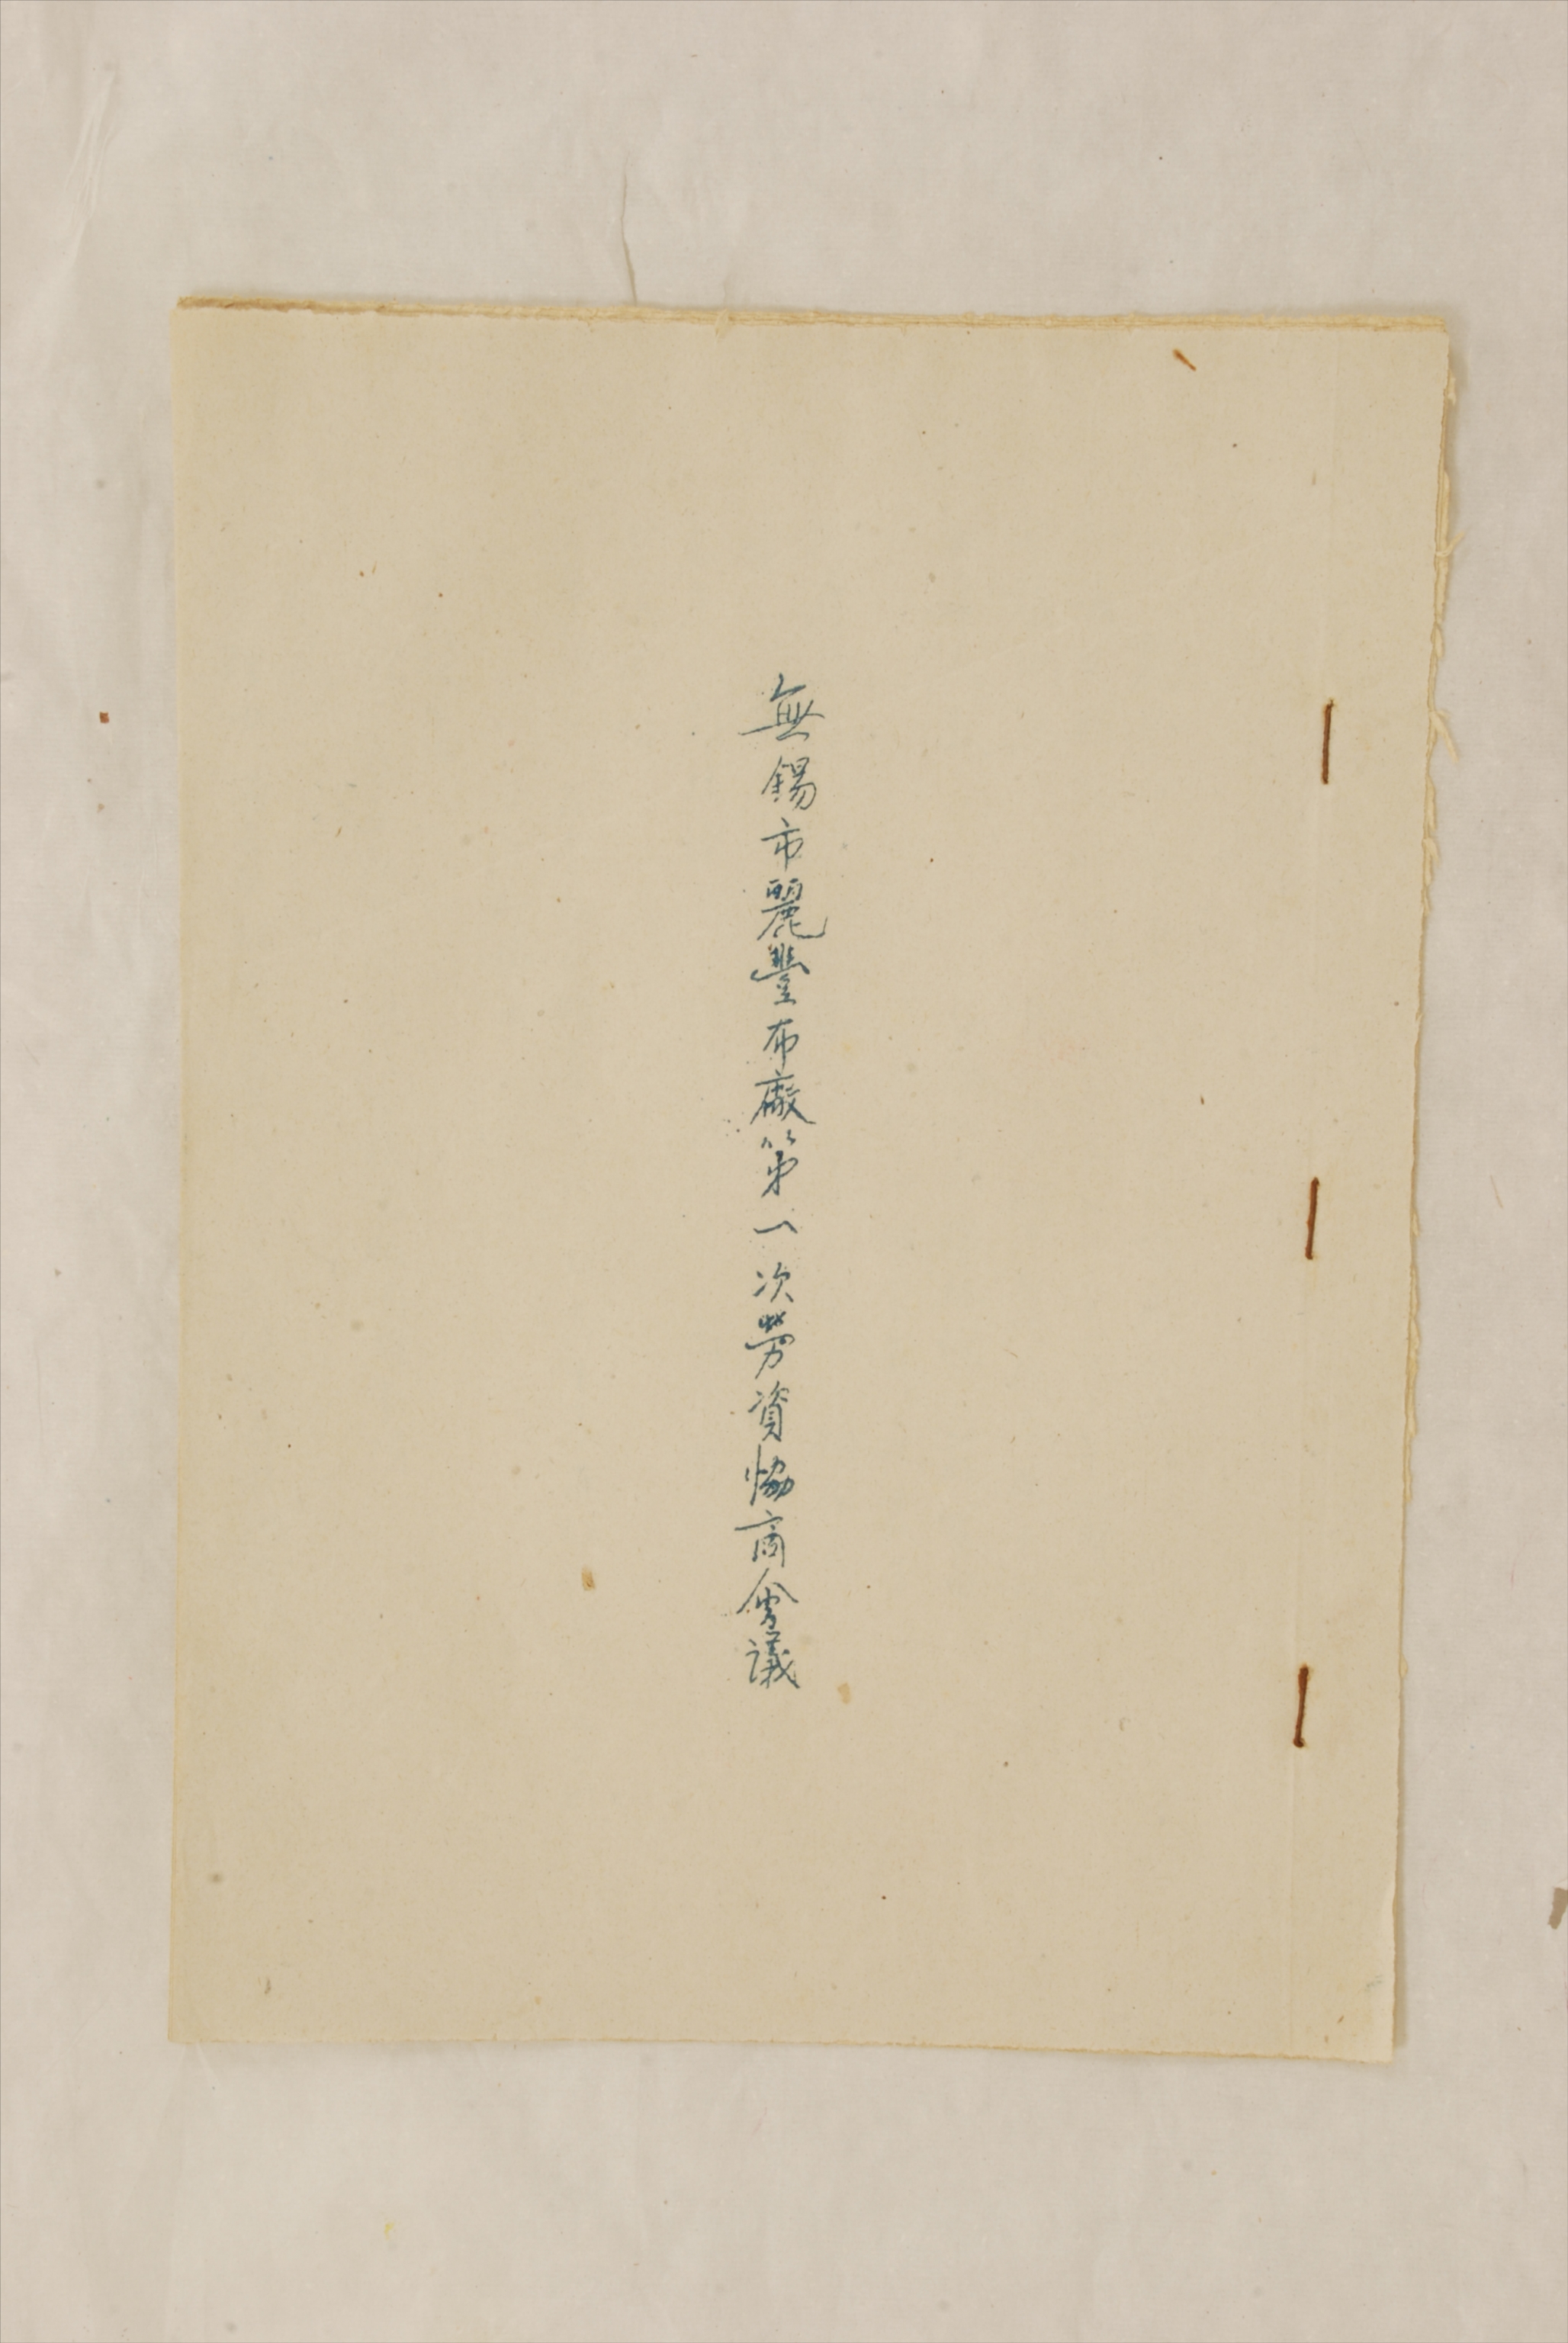 無錫市麗豐布廠第一次勞資恊商會議